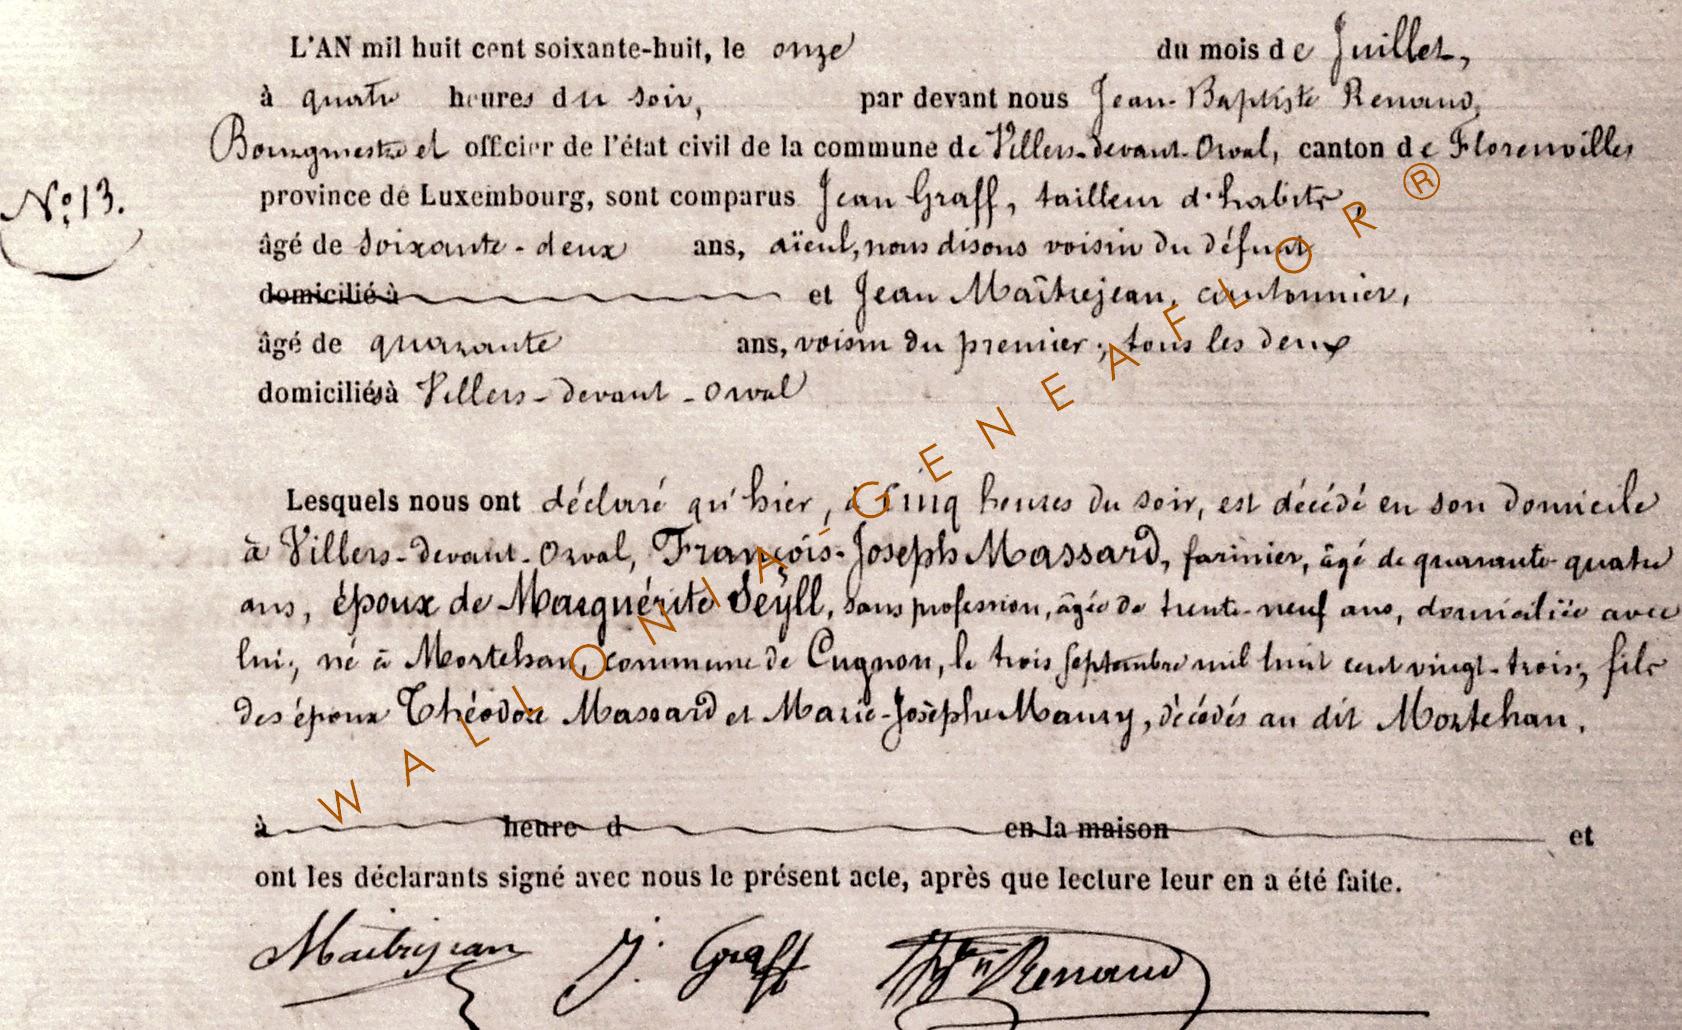 L'AN mil huit cent soixante-huit, le onze du mois de Juillet,
à quatre heures du soir, par devant nous Jean-Baptiste Renaud,
Bourgmestre et officier de l'état civil de la commune de Villers-devant-Orval, canton de Florenville,
N° 13.
province de Luxembourg, sont comparus Jean Graff, tailleur d'habits,
âgé de soixante-deux ans, aïeul, nous disons voisin du défunt
domicilié à et Jean Maîtrejean, cantonnier,
âgé de quarante ans, voisin du premier; tous les deux
domiciliés à Villers-devant-Orval
Lesquels nous ont déclaré qu'hier, à cinq heures du soir, est décédé en son domicile
à Villers-devant-Orval, François-Joseph Massard, farinier, âgé de quarante-quatre
ans, époux de Marguérite Seÿll, sans profession, âgée de trente-neuf ans, domiciliée avec
lui; né à Mortehan, commune de Cugnon, le trois Septembre mil huit cent vingt-trois; fils
des époux Théodore Massard et Marie-Josèphe Maury, décédés au dit Mortehan.
à heure d en la maison et
ont les déclarants signé avec nous le présent acte, après que lecture leur en a été faite.
Maitrejean J. Graff Renaud
WALLONIA-GENEAFLOR®